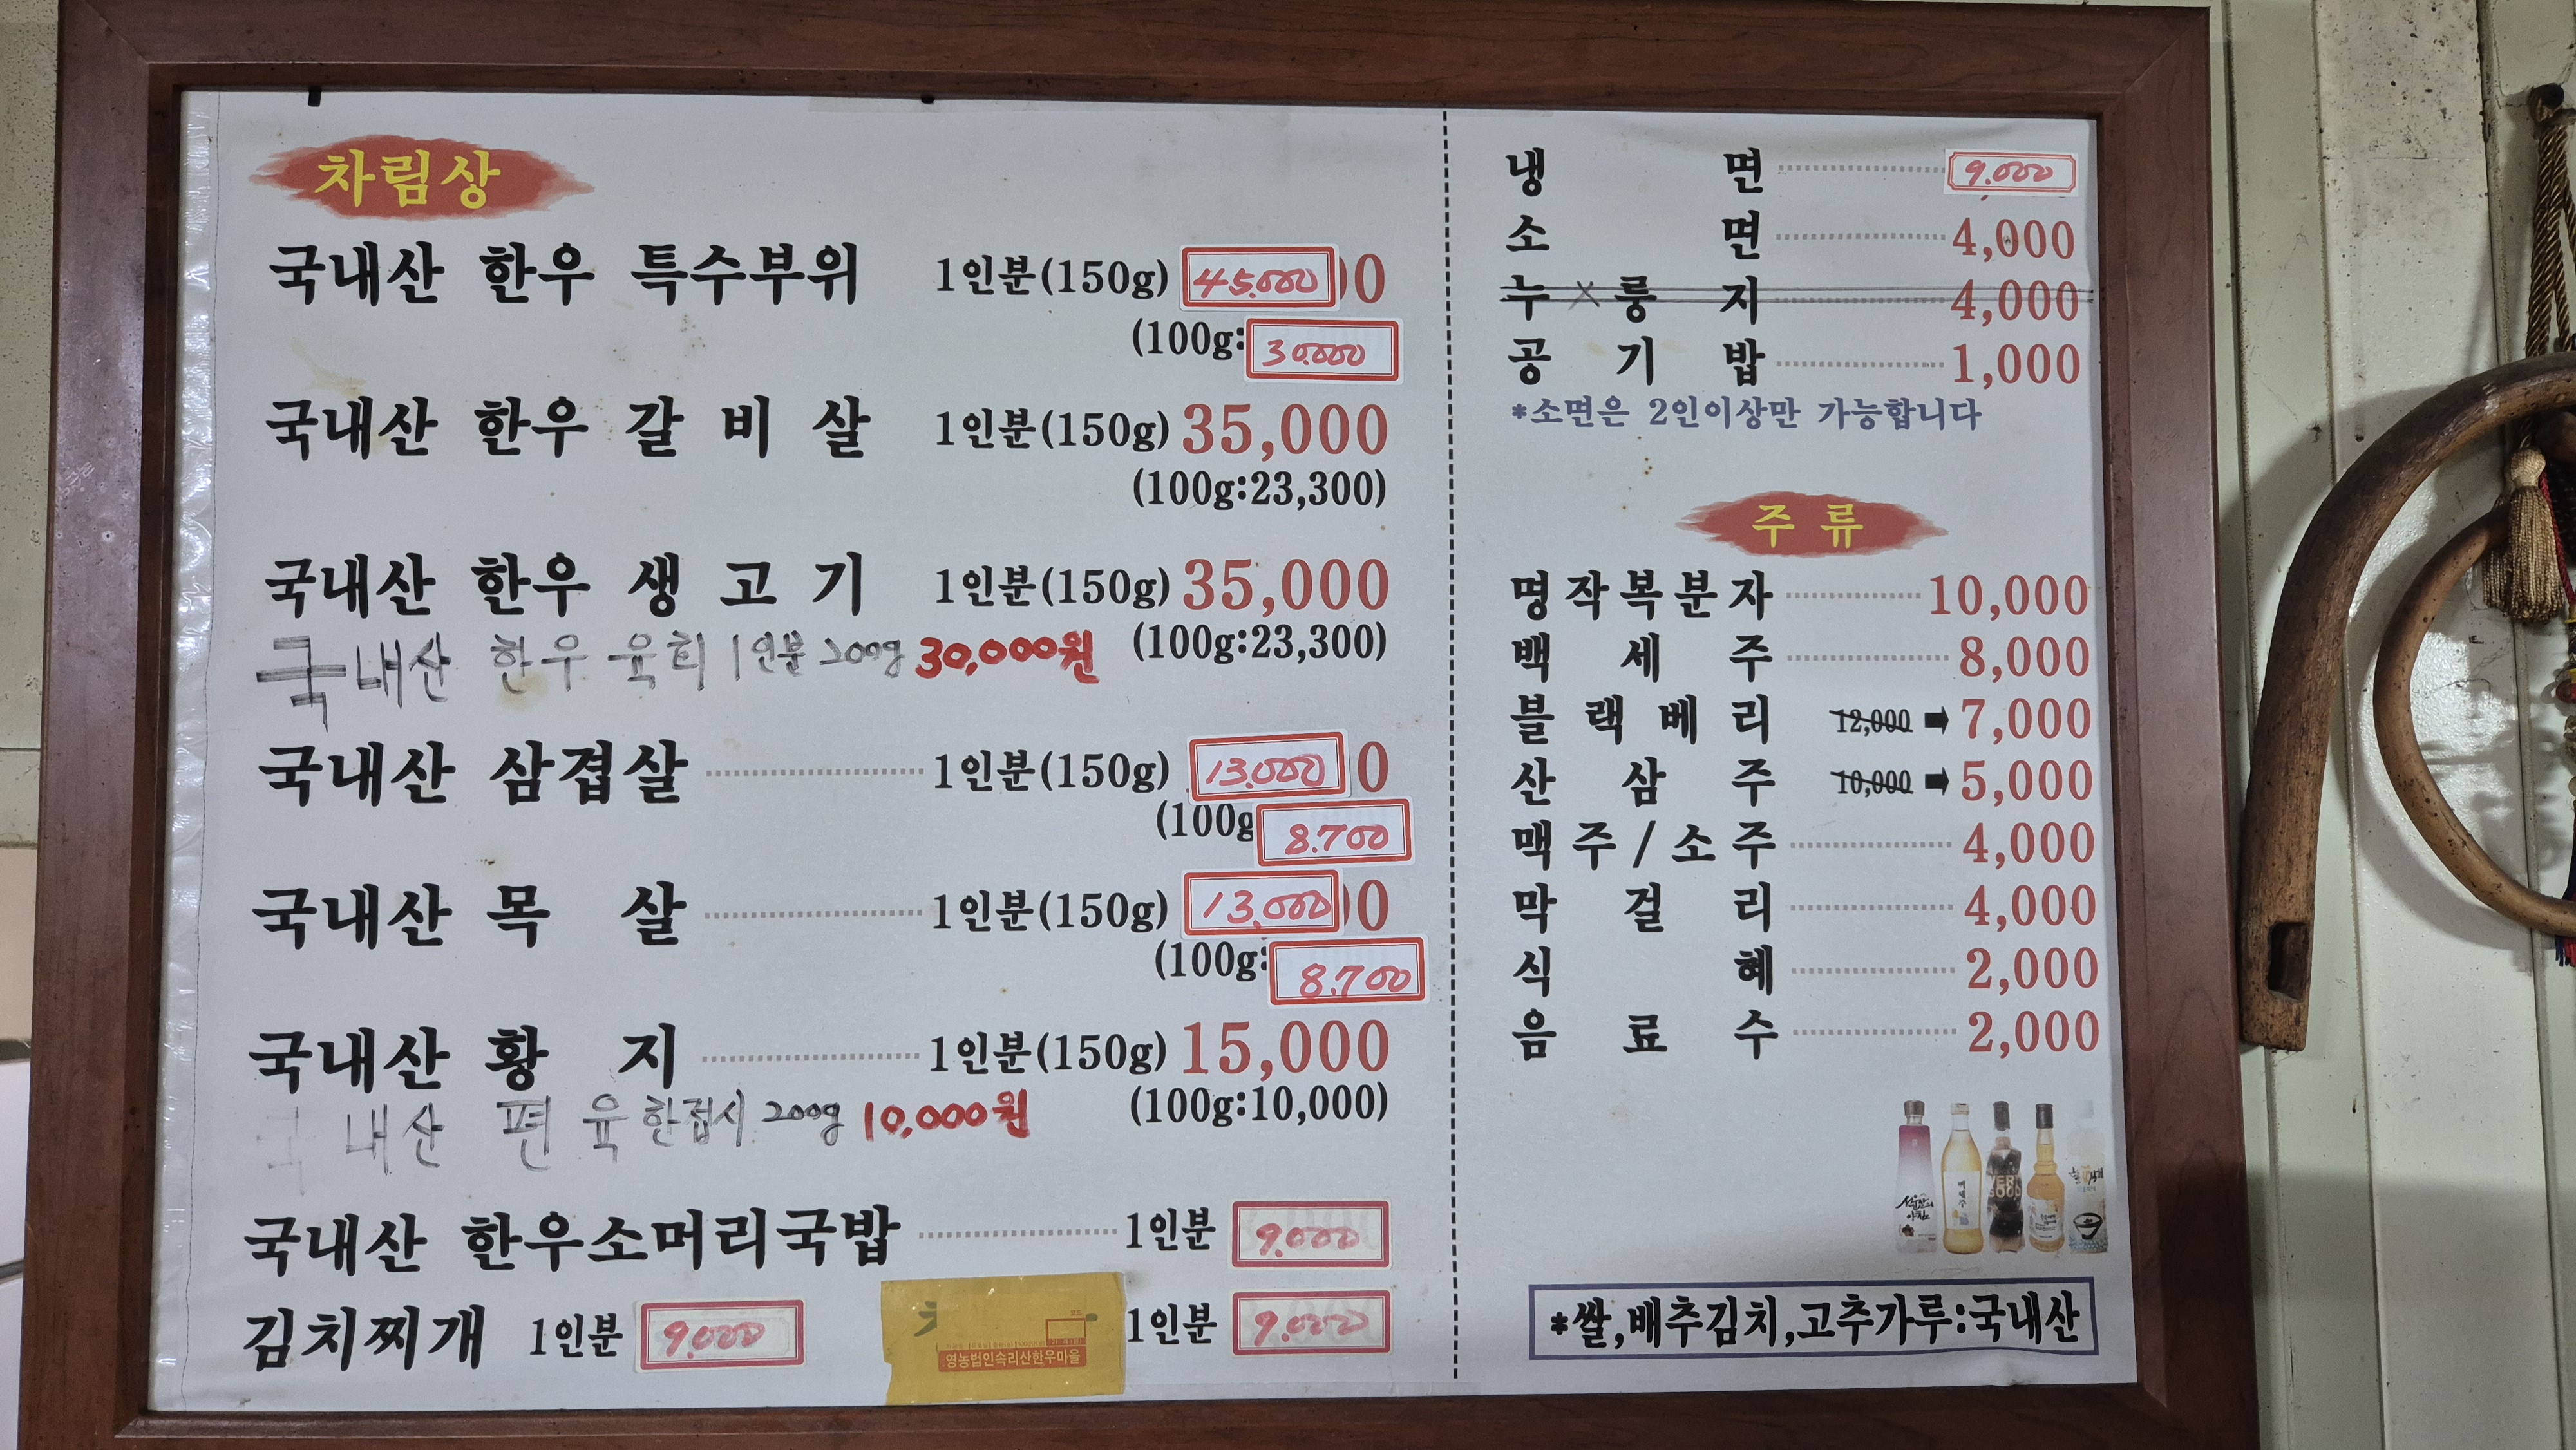 차림상
국내산 한우 특수부위 1인분(150g) 45.000
(100g: 30.000
국내산 한우 갈비살 1인분(150g) 35,000
(100g:23,300)
국내산 한우 생고기 1인분(150g) 35,000
(100g:23,300)
국내산 한우 육회 1인분 200g 30,000원
국내산 삼겹살 1인분(150g) 13.000
(100g 8.700
국내산 목살 1인분(150g) 13.000
(100g: 8.700
국내산 황지 1인분(150g) 15,000
(100g:10,000)
국내산 편육 한접시 200g 10,000원
국내산 한우소머리국밥 1인분 9.000
김치찌개 1인분 9.000 1인분 9.000
영농법인속리산한우마을
냉면 9.000
소면 4,000
누룽지 4,000
공기밥 1,000
*소면은 2인이상만 가능합니다
주류
명작복분자 10,000
백세주 8,000
블랙베리 12,000 ➡ 7,000
산삼주 10,000 ➡ 5,000
맥주/소주 4,000
막걸리 4,000
식혜 2,000
음료수 2,000
*쌀,배추김치,고추가루:국내산